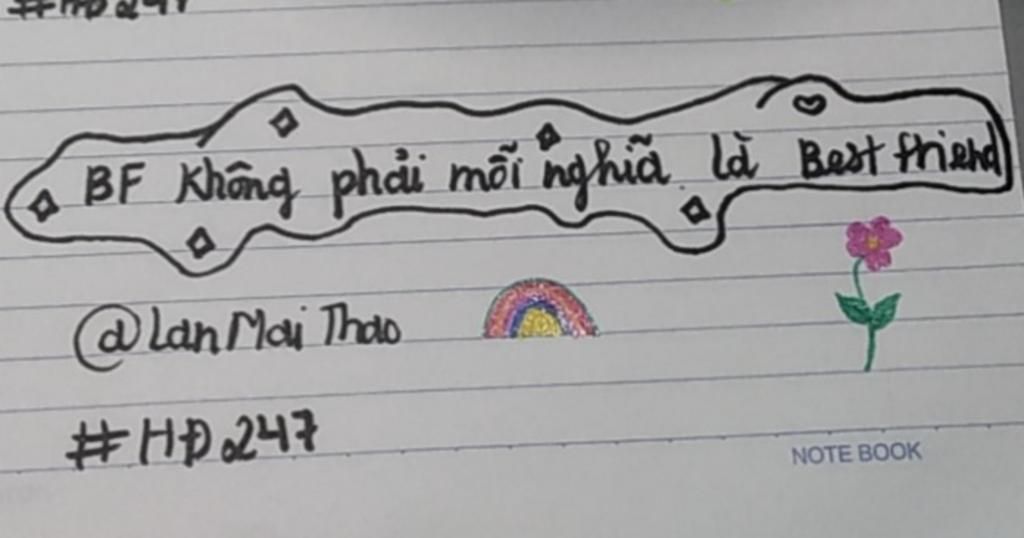 #HĐ247
BF Không phải mỗi nghĩa là Best friend
@Lan Mai Thao
#HĐ247
NOTE BOOK